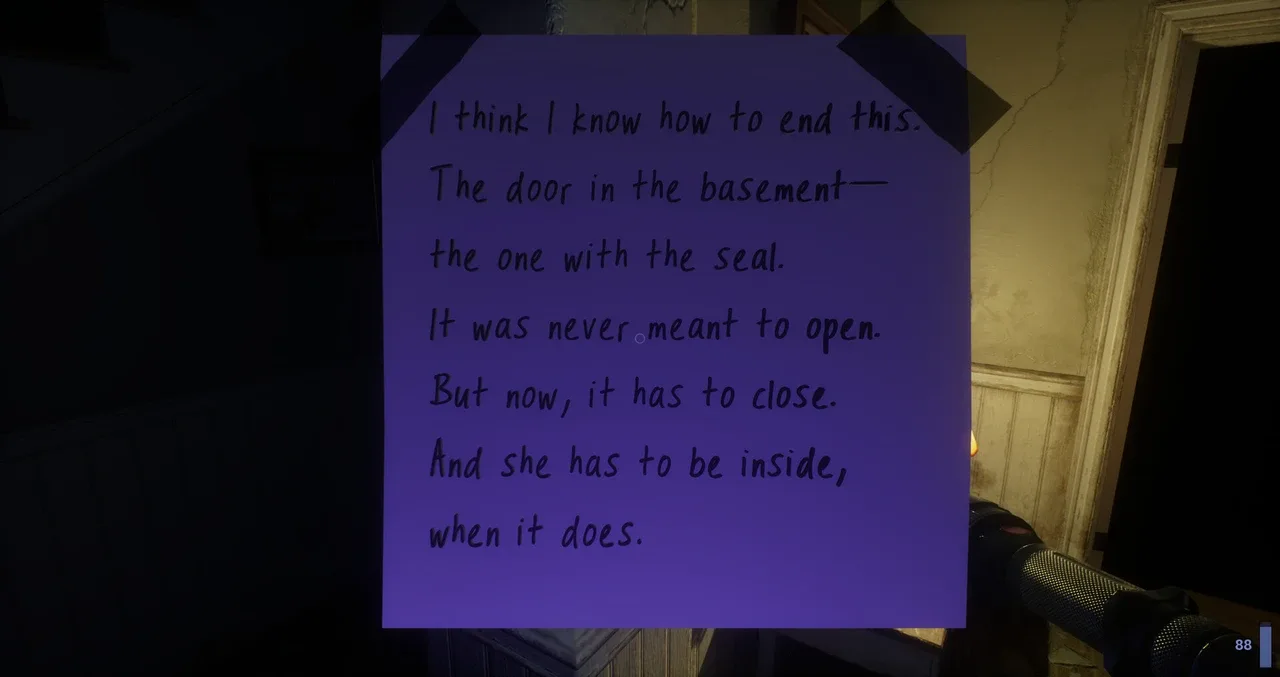 I think I know how to end this.
The door in the basement—
the one with the seal.
It was never meant to open.
But now, it has to close.
And she has to be inside,
when it does.
88